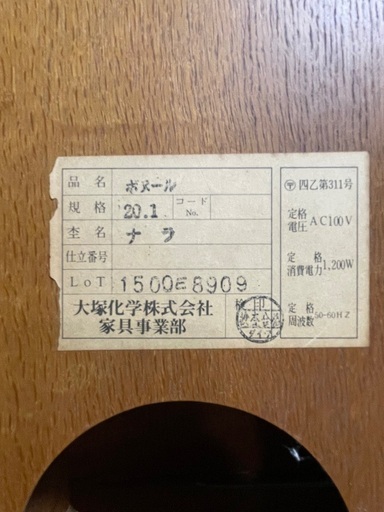 品名 ボヌール
規格 20.1 コード No.
杢名 ナラ
仕立番号
LoT 1500E8909
大塚化学株式会社
家具事業部
〒 四乙第311号
定格電圧 AC100V
定格消費電力 1,200W
定格周波数 50-60HZ